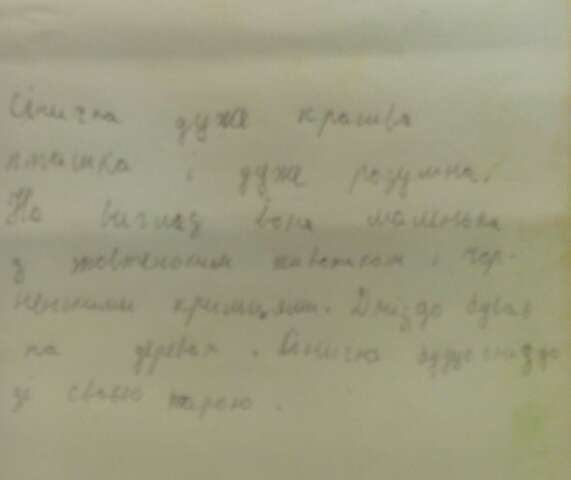 Синичка дуже красива
пташка і дуже розумна.
На вигляд вона маленька
з жовтеньким животиком і чор-
ненькими крильцями. Гніздо будує
на деревах. Синичка будує гніздо
зі своєю парою.